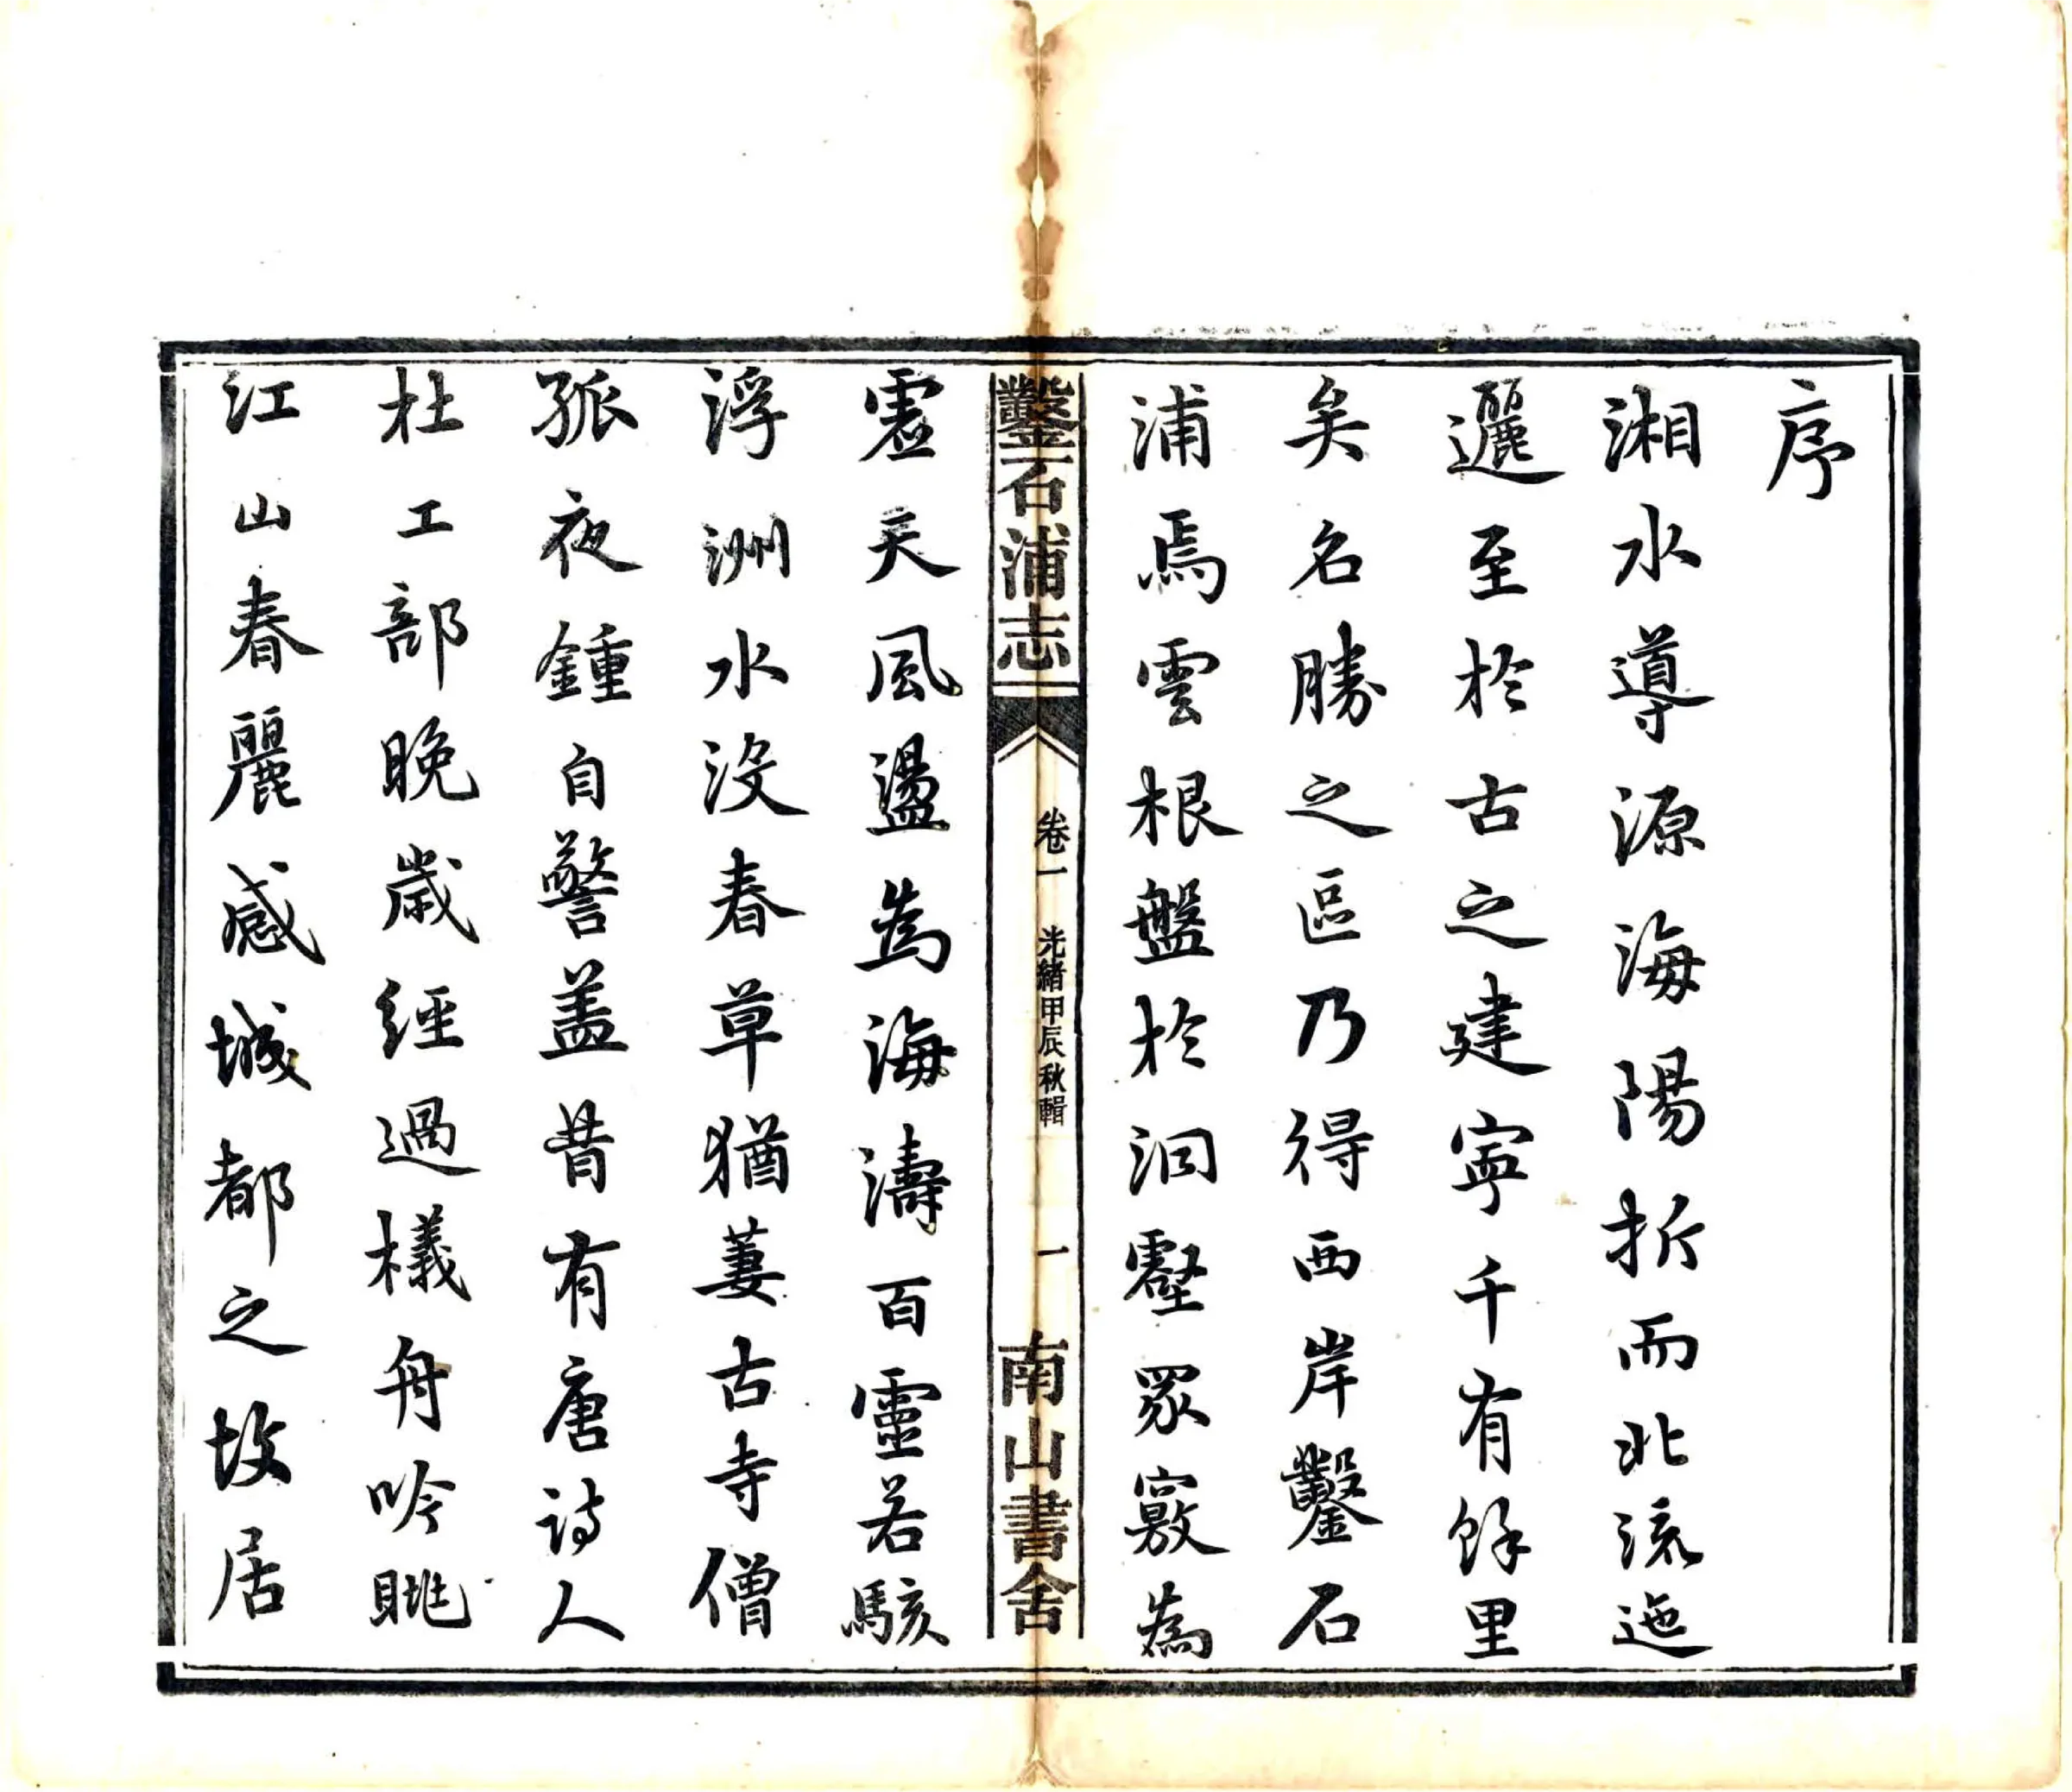 序
湘水導源海陽折而北流迤
邐至於古之建寧千有餘里
矣名勝之區乃得西岸鑿石
浦焉雲根盤於洄壑眾竅為
虛天風盪為海濤百靈若駭
浮洲水沒春草猶萋古寺僧
孤夜鍾自警盖昔有唐詩人
杜工部晚歲經過檥舟吟眺
江山春麗感城都之故居
鑿石浦志
卷一 光緒甲辰秋輯
一
南山書舍